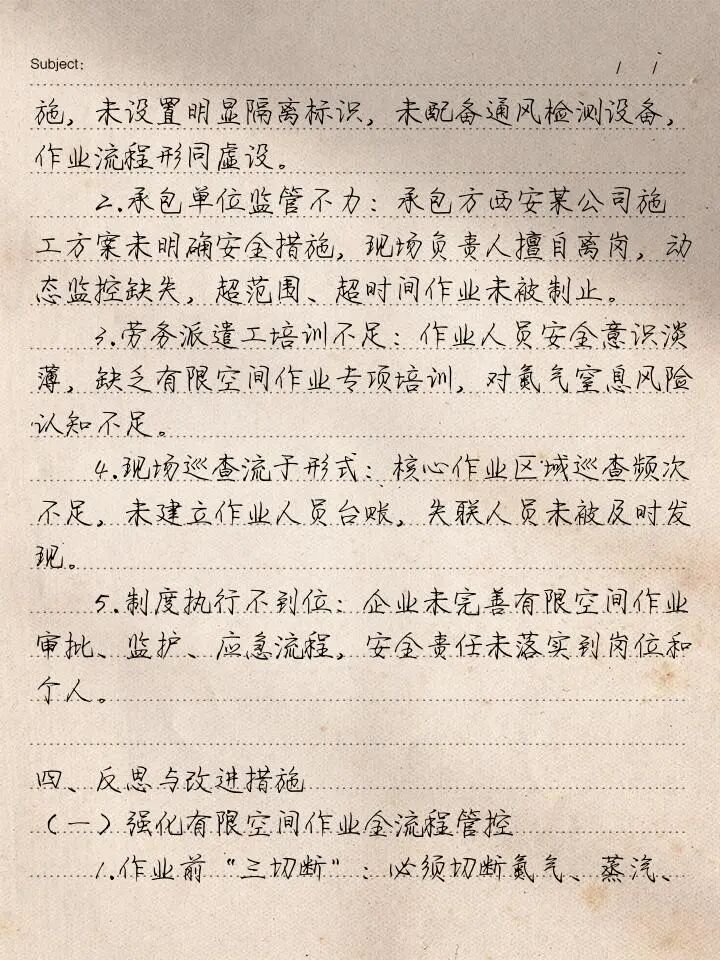 Subject:
/ /
施，未设置明显隔离标识，未配备通风检测设备，
作业流程形同虚设。
2.承包单位监管不力：承包方西安某公司施
工方案未明确安全措施，现场负责人擅自离岗，动
态监控缺失，超范围、超时间作业未被制止。
3.劳务派遣工培训不足：作业人员安全意识淡
薄，缺乏有限空间作业专项培训，对氮气窒息风险
认知不足。
4.现场巡查流于形式：核心作业区域巡查频次
不足，未建立作业人员台账，失联人员未被及时发
现。
5.制度执行不到位：企业未完善有限空间作业
审批、监护、应急流程，安全责任未落实到岗位和
个人。
四、反思与改进措施
（一）强化有限空间作业全流程管控
1.作业前“三切断”：必须切断氮气、蒸汽、